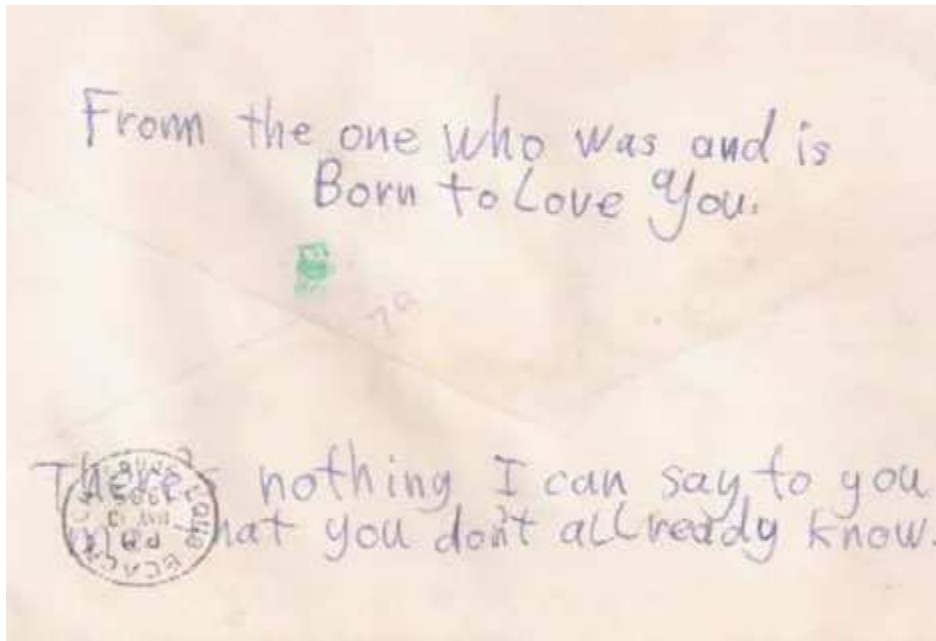 From the one who was and is
Born to Love You.
There's nothing I can say to you
that you don't allready know.